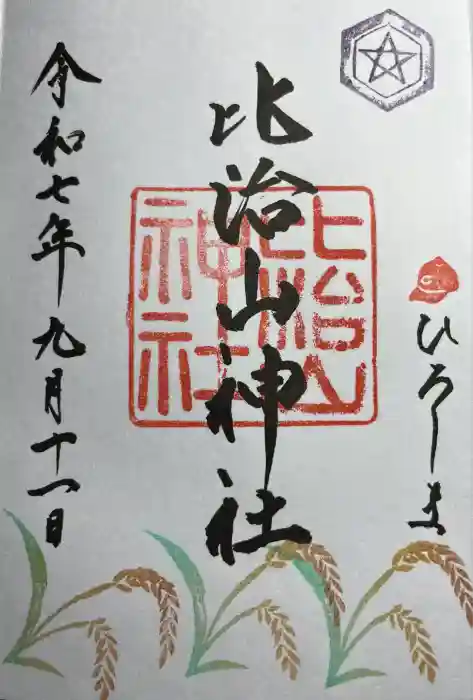 ひろしま
比治山神社
比治山
神社
令和七年九月十一日